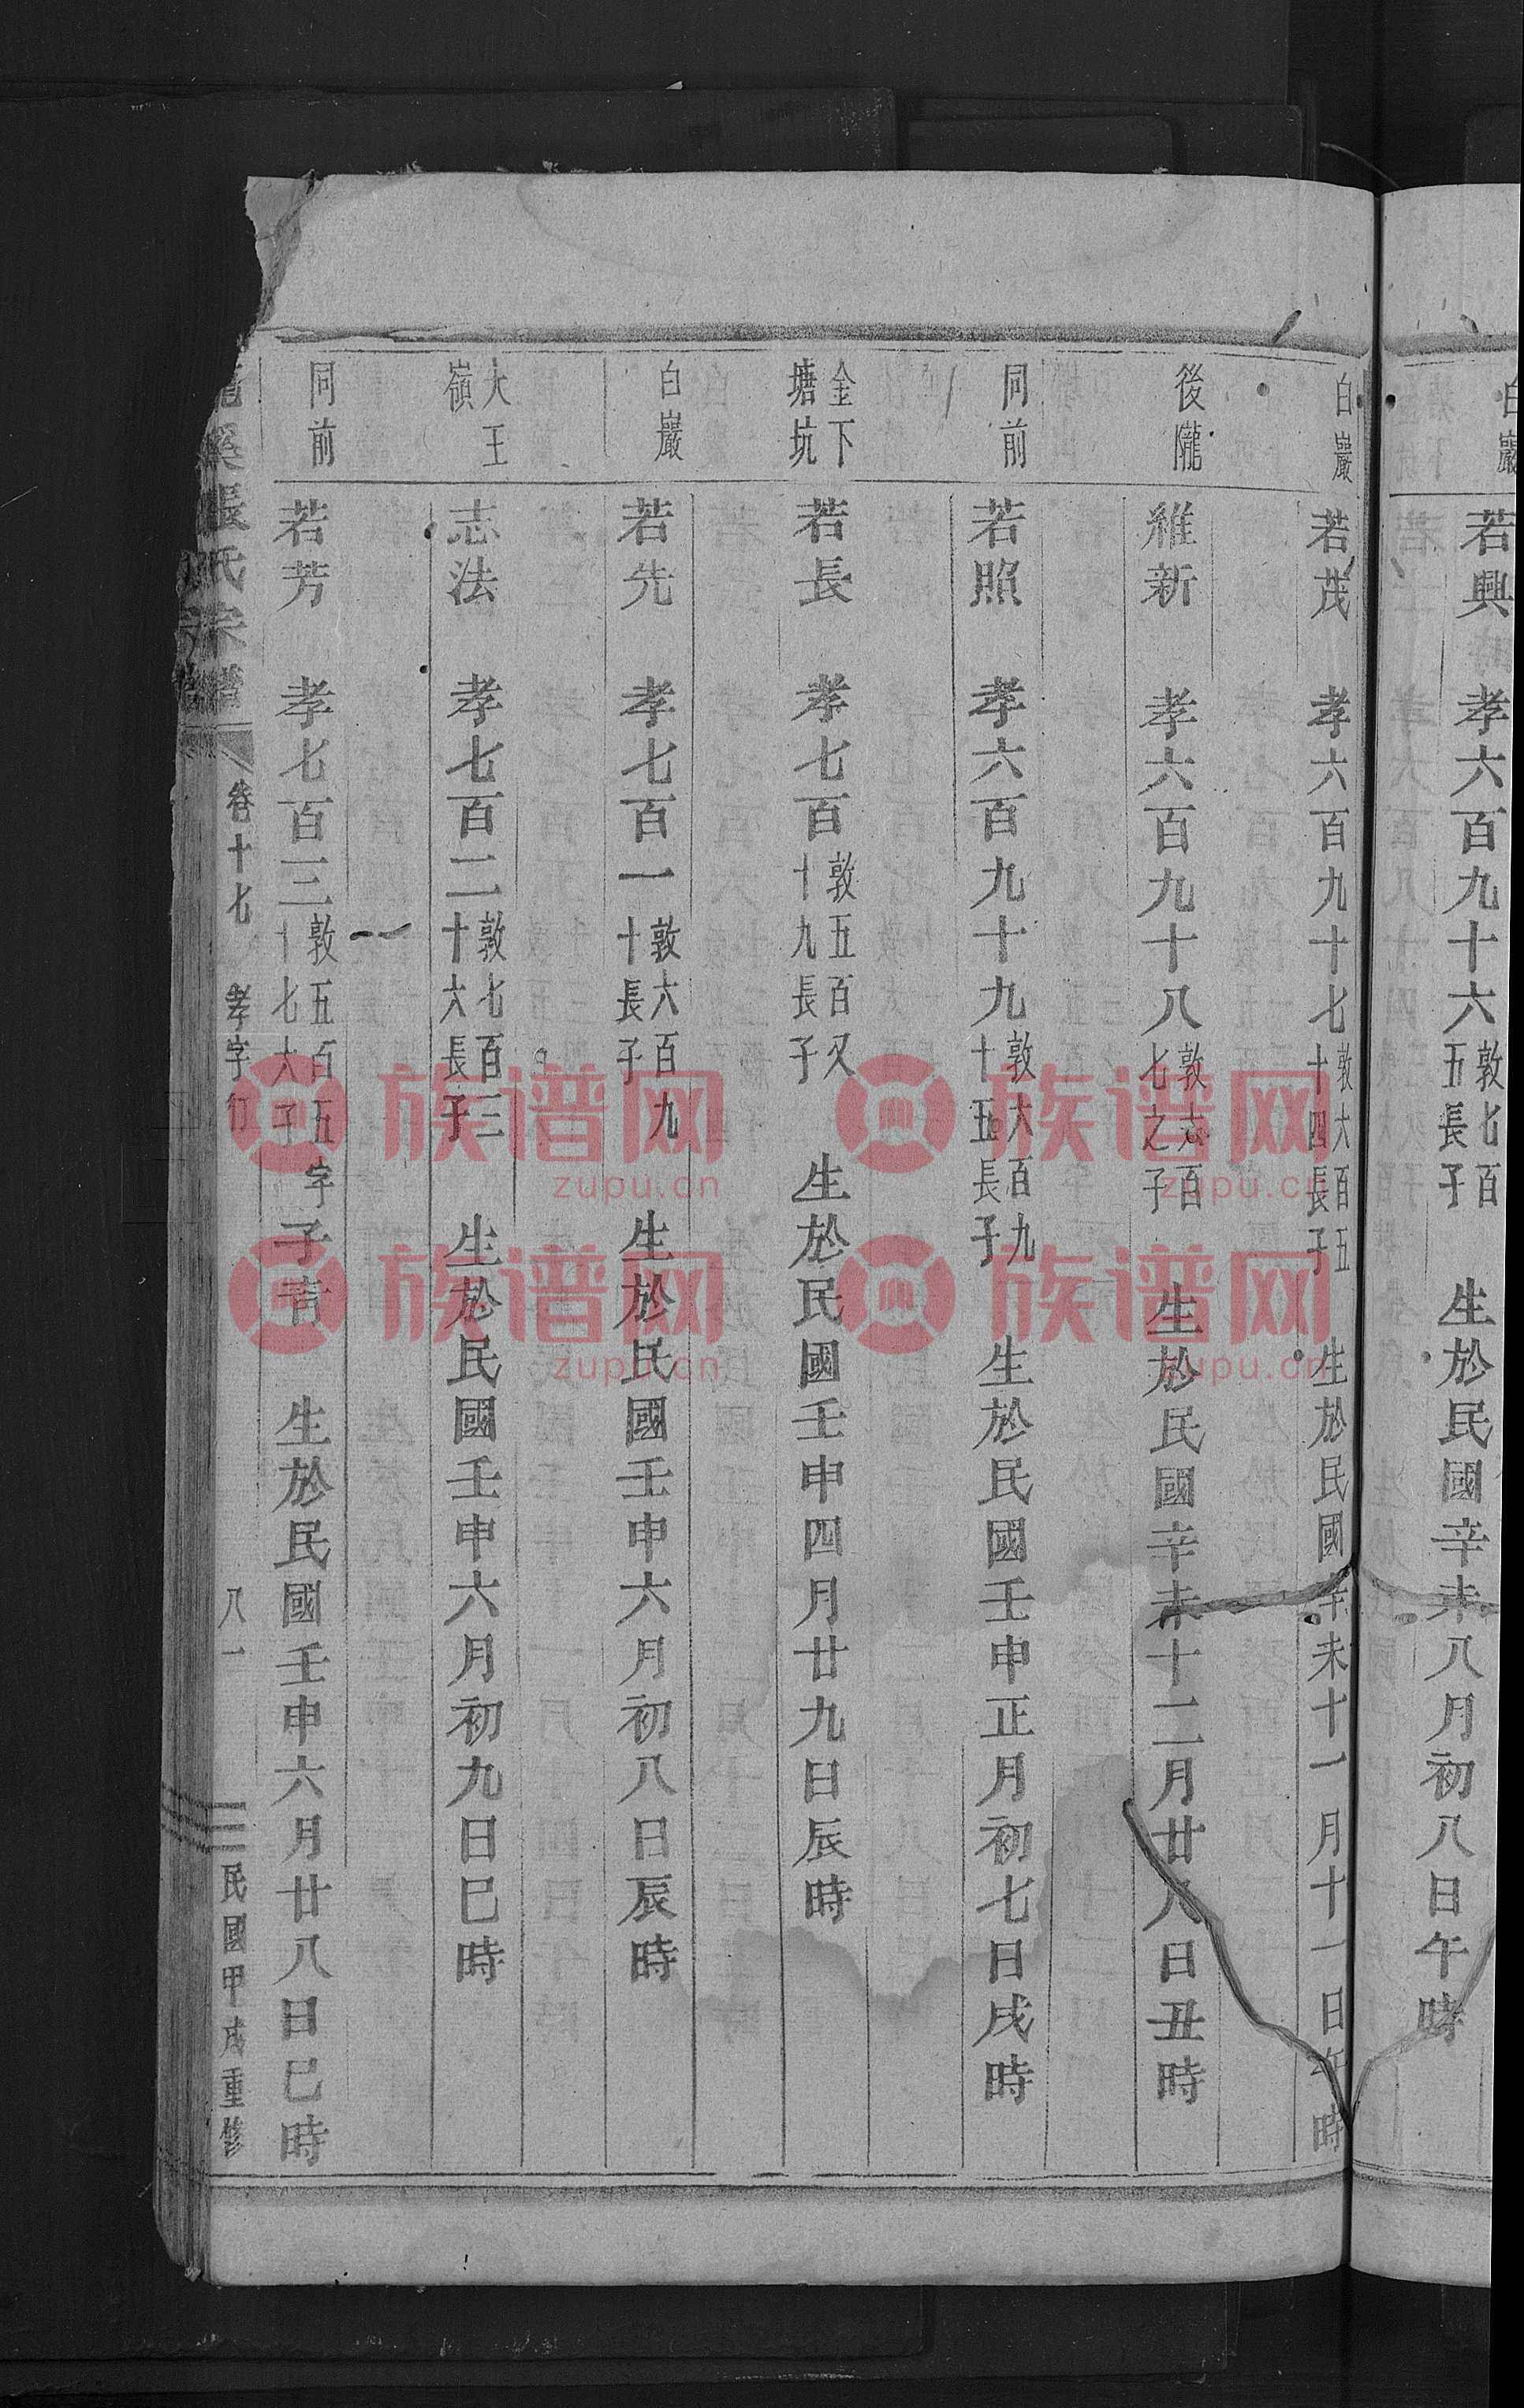 白巖
若興 孝六百九十六 敦七百五長子 生於民國辛未八月初八日午時
白巖
若茂 孝六百九十七 敦六百五十四長子 生於民國辛未十一月十一日午時
後隴
維新 孝六百九十八 敦六百七之子 生於民國辛未十二月廿八日丑時
同前
若照 孝六百九十九 敦六百九十五長子 生於民國壬申正月初七日戌時
金下塘坑
若長 孝七百 敦五百又十九長子 生於民國壬申四月廿九日辰時
白巖
若先 孝七百一 敦六百九十長子 生於民國壬申六月初八日辰時
大王嶺
志法 孝七百二 敦七百三十六長子 生於民國壬申六月初九日巳時
同前
若芳 孝七百三 敦五百五十七大子 字子青 生於民國壬申六月廿八日巳時
溪張氏宗譜 卷十七 孝字行 八一 民國甲戌重修
族谱网 zupu.cn
族谱网 zupu.cn
族谱网 zupu.cn
族谱网 zupu.cn